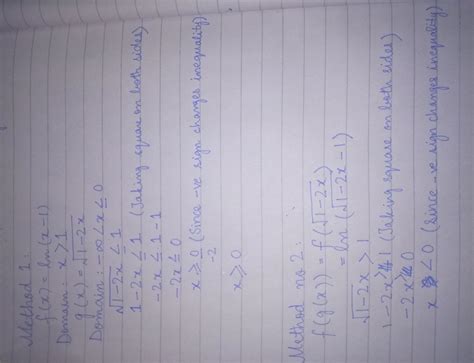 Method 1:
f(x) = ln(x-1)
Domain: x > 1
g(x) = √1-2x
Domain: -∞ < x ≤ 0
√1-2x ≤ 1
1-2x ≤ 1 (Taking square on both sides)
-2x ≤ 1-1
-2x ≤ 0
x ≥ 0/-2 (Since -ve sign changes inequality)
x ≥ 0
Method no 2:
f(g(x)) = f(√1-2x)
= ln(√1-2x -1)
√1-2x > 1
1-2x > 1 (Taking square on both sides)
-2x > 0
x < 0 (Since -ve sign changes inequality)